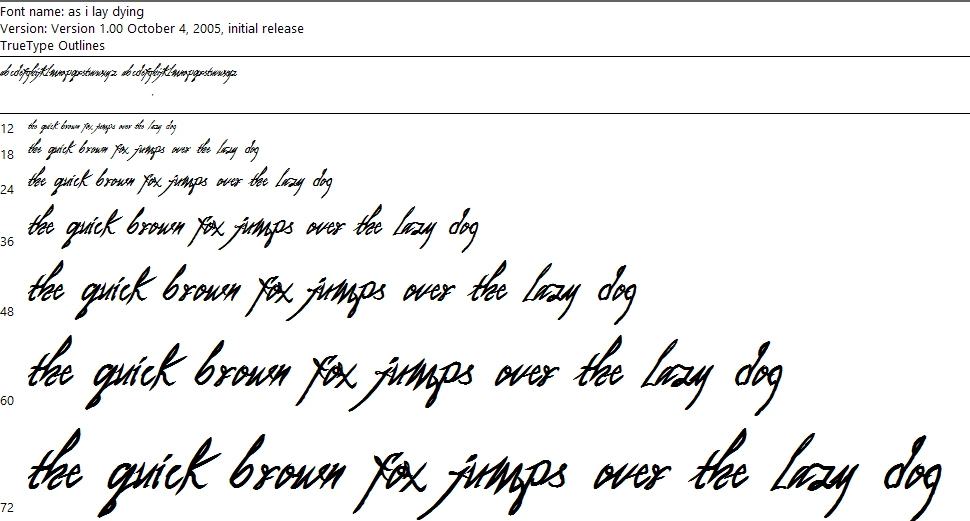 Font name: as i lay dying
Version: Version 1.00 October 4, 2005, initial release
TrueType Outlines
abcdefghijklmnopqrstuvwxyz abcdefghijklmnopqrstuvwxyz
.
12 the quick brown fox jumps over the lazy dog
18 the quick brown fox jumps over the lazy dog
24 the quick brown fox jumps over the lazy dog
36 the quick brown fox jumps over the lazy dog
48 the quick brown fox jumps over the lazy dog
60 the quick brown fox jumps over the lazy dog
72 the quick brown fox jumps over the lazy dog